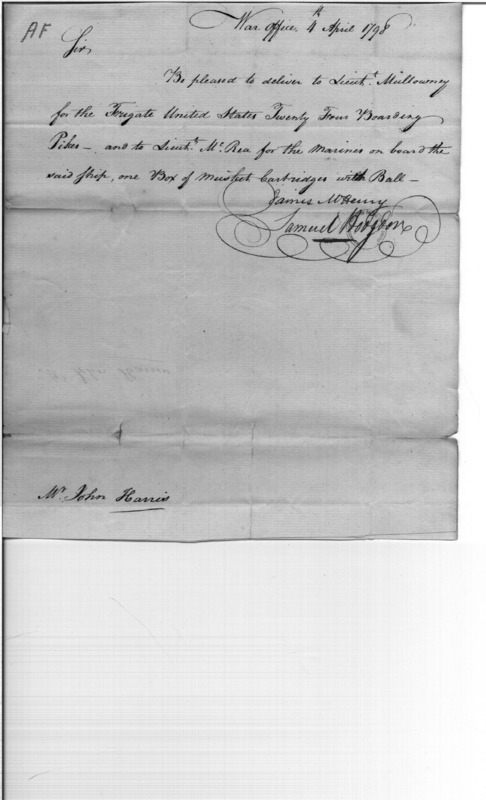 AF
War Office, 4th April 1798
Sir,
Be pleased to deliver to Lieutt. Mullowney
for the Frigate United States Twenty Four Boarding
Pikes — and to Lieutt. McRea for the Marines on board the
said Ship, one Box of Musket Cartridges with Ball —
James McHenry
Samuel Hodgdon
Mr. John Harris